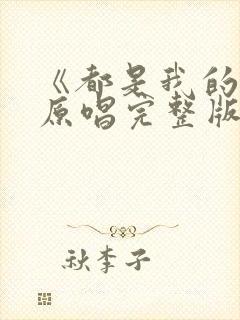 《都是我的
原唱完整版
秋李子